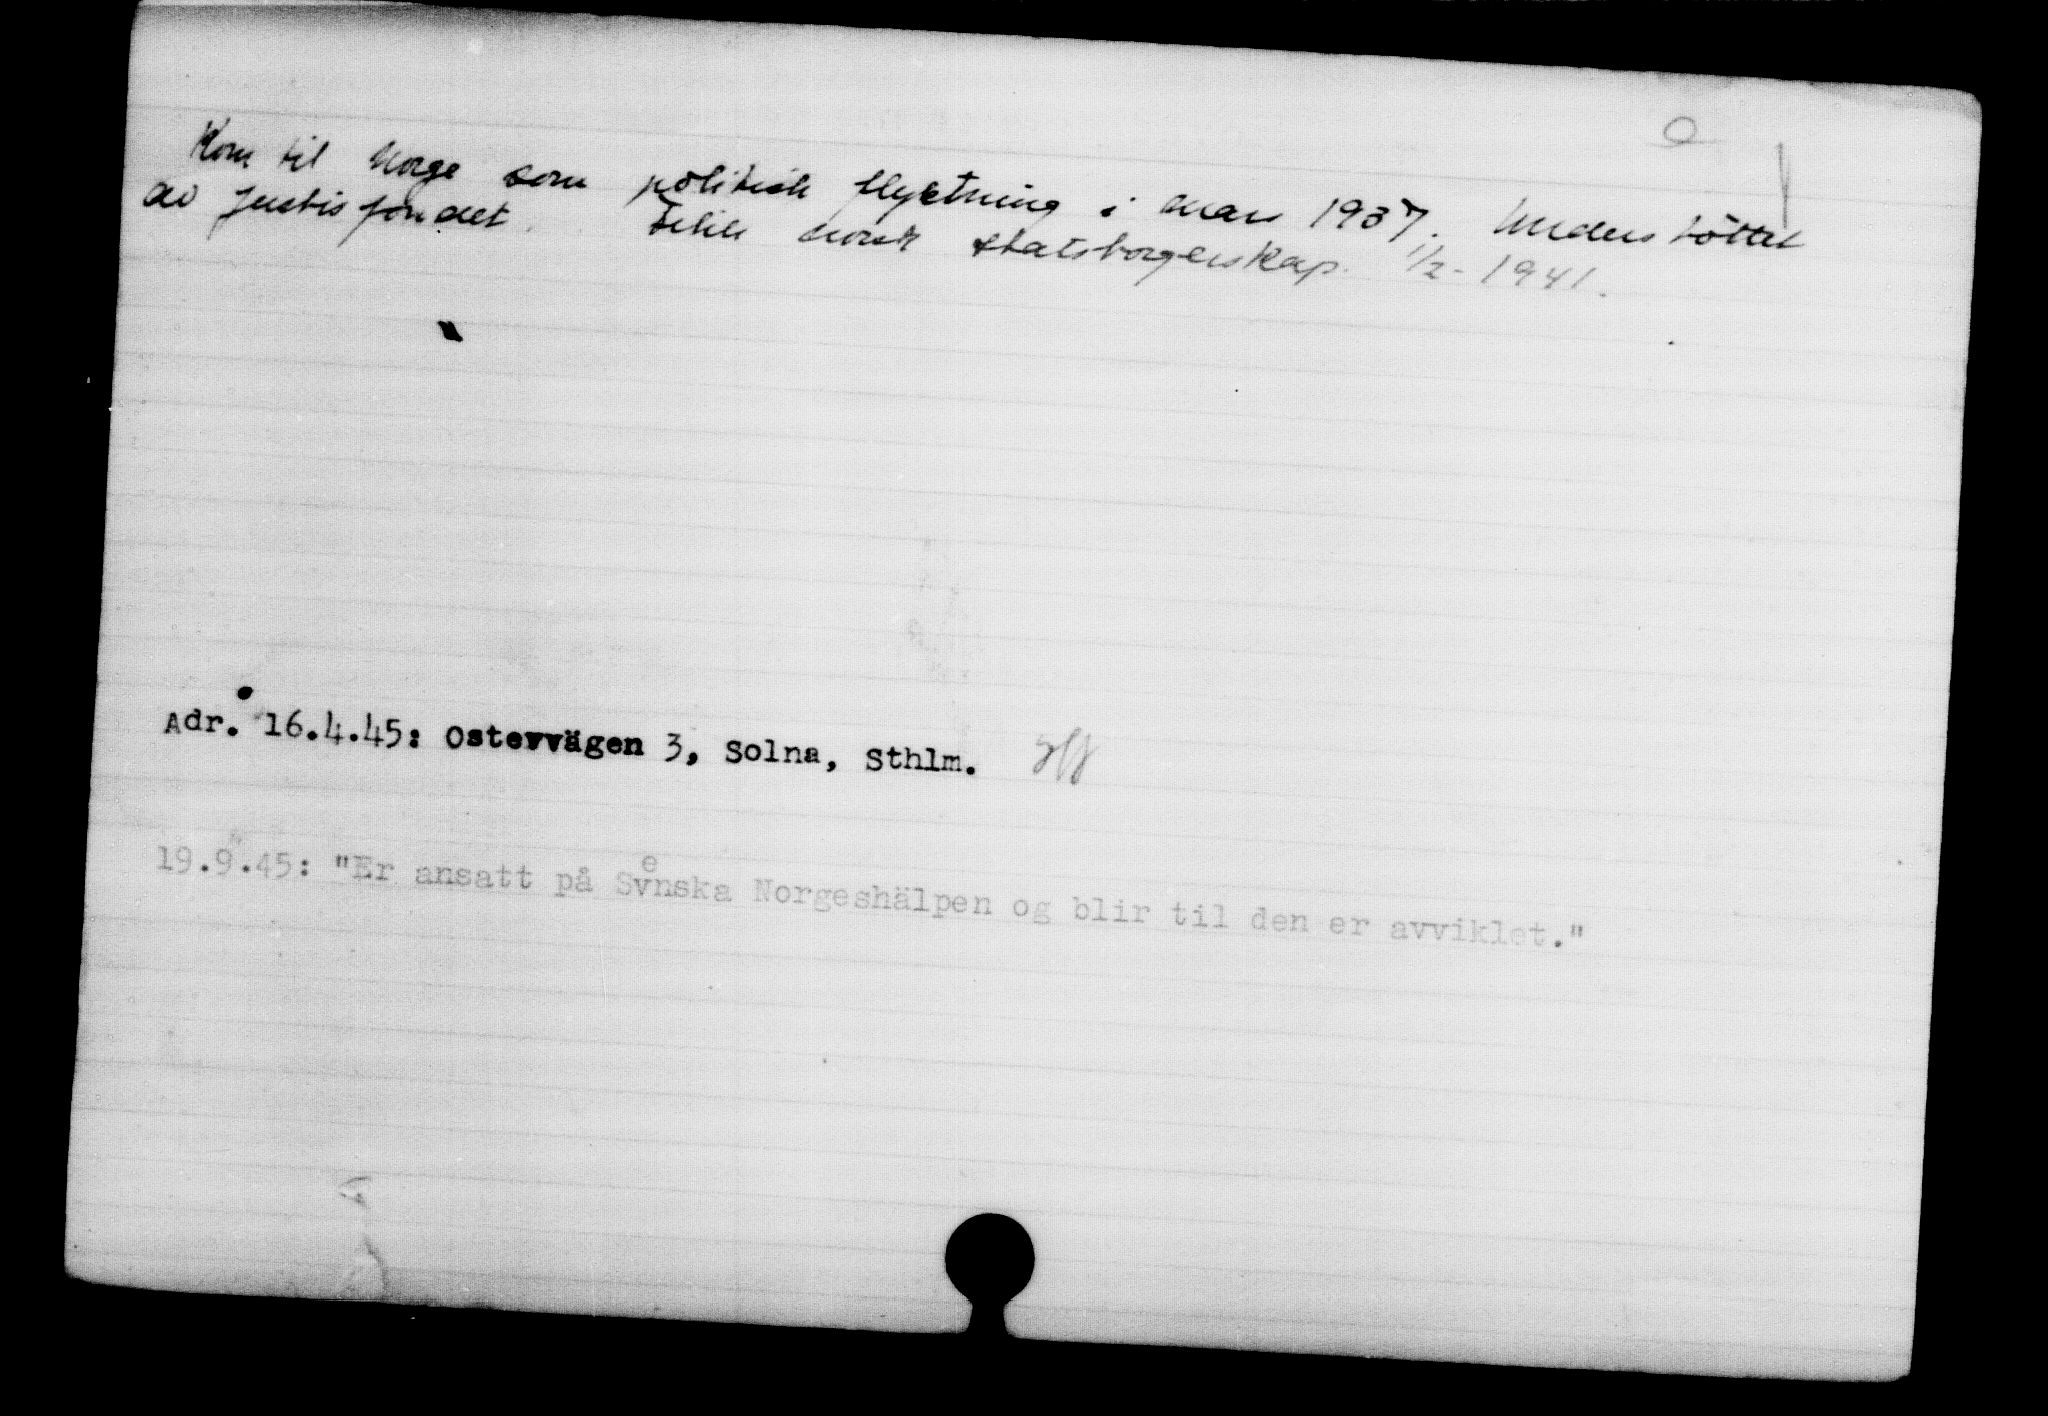 Kom til Norge som politisk flyktning i mars 1937. Understöttet
av Justisfondet. Fikk norsk statsborgerskap. 1/2-1941.
Adr. 16.4.45: Ostervägen 3, Solna, Sthlm.
19.9.45: "Er ansatt på Svenska Norgeshälpen og blir til den er avviklet."